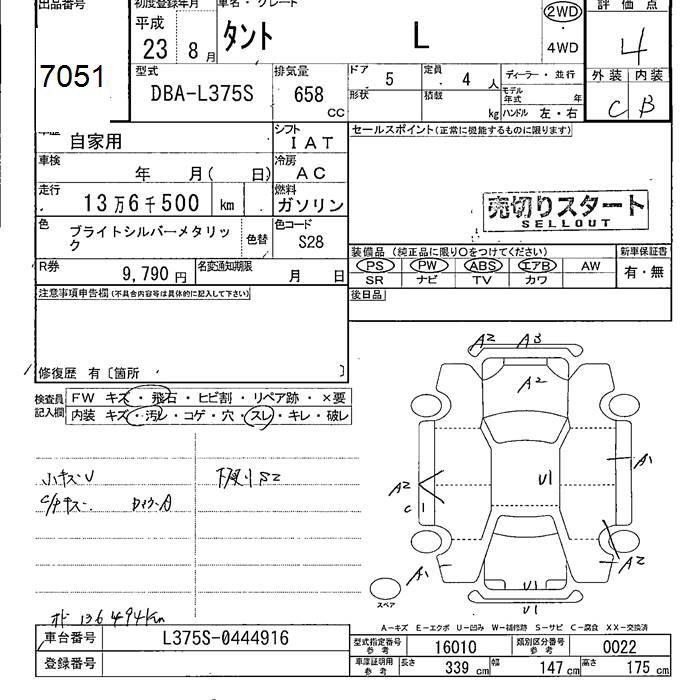 出品番号
7051
初度登録年月
平成
23 8 月
車名・グレード
タント L
2WD
4WD
評価点
4
外装 内装
C B
型式
DBA-L375S
排気量
658
CC
ドア
5
定員
4 人
ディーラー・並行
形状
積載
kg
モデル年式 年
ハンドル 左・右
車歴
自家用
シフト
IAT
セールスポイント(正常に機能するものに限ります)
車検
年 月( 日)
冷房
AC
走行
13万6千500 km
燃料
ガソリン
売切りスタート
SELLOUT
色
ブライトシルバーメタリック
色替
色コード
S28
装備品 (純正品に限り○をつけてください)
新車保証書
R券
9,790 円
名変通知期限
月 日
PS PW ABS エアB AW
SR ナビ TV カワ
有・無
注意事項申告欄(不具合内容等は具体的に記入して下さい)
後日品
修復歴 有〔箇所 〕
検査員記入欄
FW キズ・飛石・ヒビ割・リペア跡・×要
内装 キズ・汚レ・コゲ・穴・スレ・キレ・破レ
小キズ・U
下廻りS2
A2 A3
A2
A1
U1
A2
C1
A1
A2
U1
U1
スペア
136494Km
A-キズ E-エクボ U-凹み W-補修跡 S-サビ C-腐食 XX-交換済
車台番号
L375S-0444916
登録番号
型式指定番号 参考
16010
類別区分番号 参考
0022
車庫証明用 参考
長さ 339 cm
幅 147 cm
高さ 175 cm